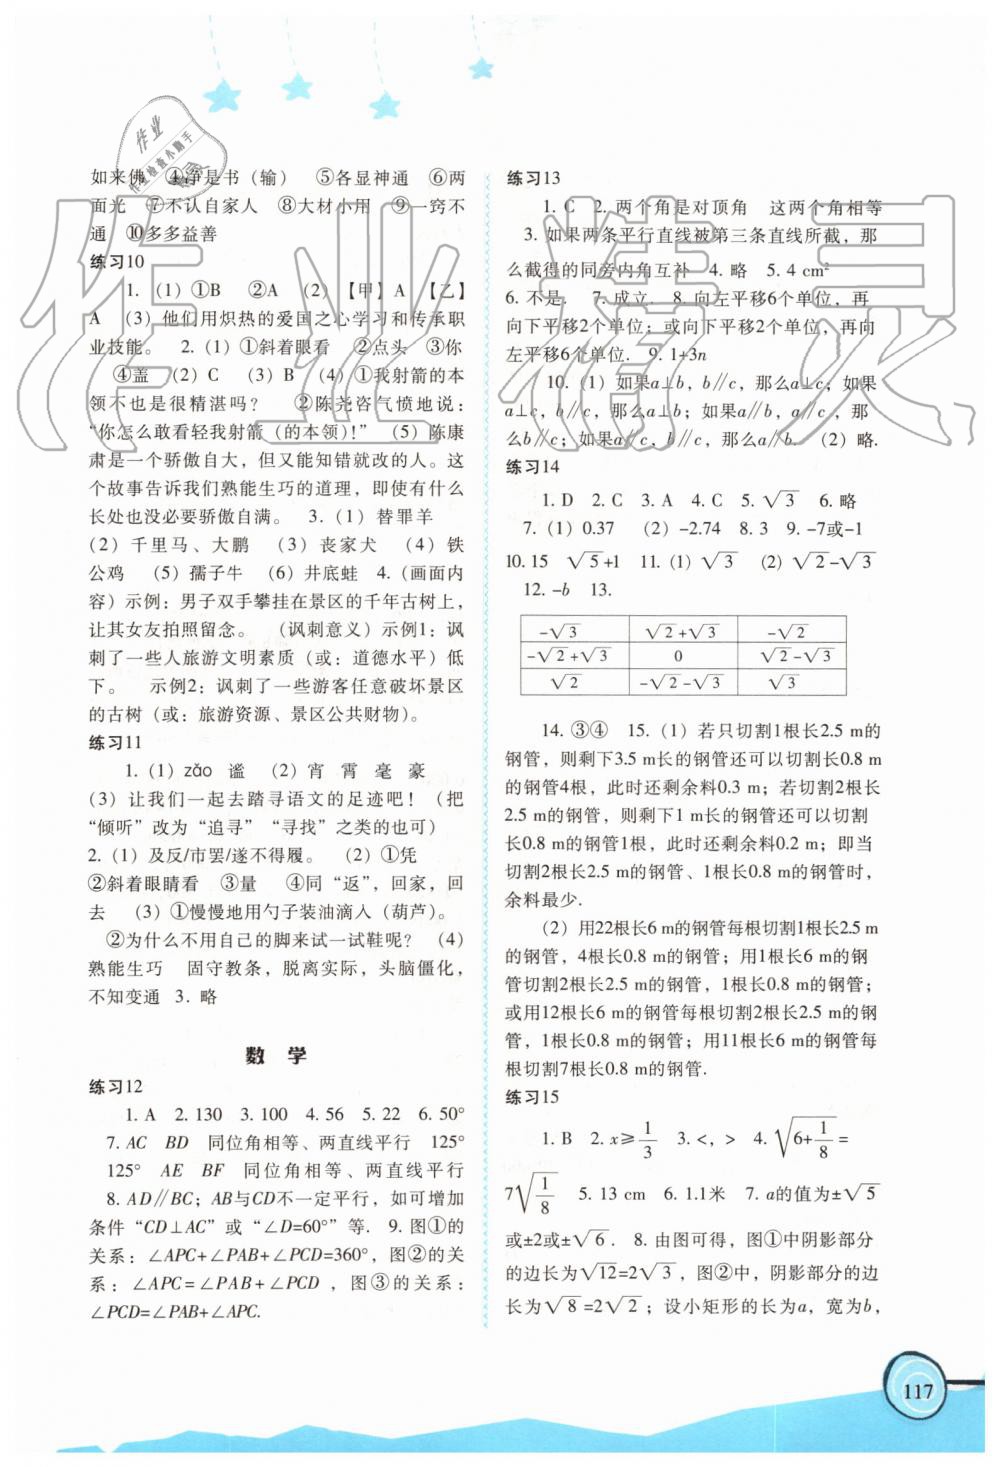 如来佛　④净是书（输）　⑤各显神通　⑥两
面光　⑦不认自家人　⑧大材小用　⑨一窍不
通　⑩多多益善
练习10
1.（1）①B　②A（2）【甲】A　【乙】
A　（3）他们用炽热的爱国之心学习和传承职
业技能。　2.（1）①斜着眼看　②点头　③你
④盖　（2）C　（3）B　（4）①我射箭的本
领不也是很精湛吗？　②陈尧咨气愤地说：
“你怎么敢看轻我射箭（的本领）！”　（5）陈康
肃是一个骄傲自大，但又能知错就改的人。这
个故事告诉我们熟能生巧的道理，即使有什么
长处也没必要骄傲自满。　3.（1）替罪羊
（2）千里马、大鹏　（3）丧家犬　（4）铁
公鸡　（5）孺子牛　（6）井底蛙　4.（画面内
容）示例：男子双手攀挂在景区的千年古树上，
让其女友拍照留念。　（讽刺意义）示例1：讽
刺了一些人旅游文明素质（或：道德水平）低
下。　示例2：讽刺了一些游客任意破坏景区
的古树（或：旅游资源、景区公共财物）。
练习11
1.（1）zǎo　谧　（2）宵　霄　毫　豪
（3）让我们一起去踏寻语文的足迹吧！（把
“倾听”改为“追寻”“寻找”之类的也可）
2.（1）及反/市罢/遂不得履。　（2）①凭
②斜着眼睛看　③量　④同“返”，回家，回
去　（3）①慢慢地用勺子装油滴入（葫芦）。
②为什么不用自己的脚来试一试鞋呢？　（4）
熟能生巧　固守教条，脱离实际，头脑僵化，
不知变通　3. 略
数　学
练习12
1. A　2. 130　3. 100　4. 56　5. 22　6. 50°
7. AC　BD　同位角相等、两直线平行　125°
125°　AE　BF　同位角相等、两直线平行
8. AD∥BC；AB与CD不一定平行，如可增加
条件“CD⊥AC”或“∠D=60°”等.　9. 图①的
关系：∠APC+∠PAB+∠PCD=360°，图②的关
系：∠APC=∠PAB+∠PCD，图③的关系：
∠PCD=∠PAB+∠APC.
练习13
1. C　2. 两个角是对顶角　这两个角相等
3. 如果两条平行直线被第三条直线所截，那
么截得的同旁内角互补　4. 略　5. 4 cm²
6. 不是.　7. 成立.　8. 向左平移6个单位，再
向下平移2个单位；或向下平移2个单位，再向
左平移6个单位.　9. 1+3n
10.（1）如果a⊥b，b∥c，那么a⊥c；如果
a⊥c，b∥c，那么a⊥b；如果a∥b，a∥c，那
么b∥c；如果a⊥c，b⊥c，那么a∥b.　（2）略.
练习14
1. D　2. C　3. A　4. C　5. √3　6. 略
7.（1）0.37　（2）-2.74　8. 3　9. -7或-1
10. 15　√5+1　11.（1）√3　（2）√2-√3
12. -b　13.
-√3　√2+√3　-√2
-√2+√3　0　√2-√3
√2　-√2-√3　√3
14. ③④　15.（1）若只切割1根长2.5 m的
钢管，则剩下3.5 m长的钢管还可以切割长0.8 m
的钢管4根，此时还剩余料0.3 m；若切割2根长
2.5 m的钢管，则剩下1 m长的钢管还可以切割
长0.8 m的钢管1根，此时还剩余料0.2 m；即当
切割2根长2.5 m的钢管、1根长0.8 m的钢管时，
余料最少.
（2）用22根长6 m的钢管每根切割1根长2.5 m
的钢管，4根长0.8 m的钢管；用1根长6 m的钢
管切割2根长2.5 m的钢管，1根长0.8 m的钢管；
或用12根长6 m的钢管每根切割2根长2.5 m的钢
管，1根长0.8 m的钢管；用11根长6 m的钢管每
根切割7根长0.8 m的钢管.
练习15
1. B　2. x≥1/3　3. <，>　4. √(6+1/8)=
7√(1/8)　5. 13 cm　6. 1.1米　7. a的值为±√5
或±2或±√6.　8. 由图可得，图①中阴影部分
的边长为√12=2√3，图②中，阴影部分的边
长为√8=2√2；设小矩形的长为a，宽为b，
117
作业
作业检查小助手
作业精灵